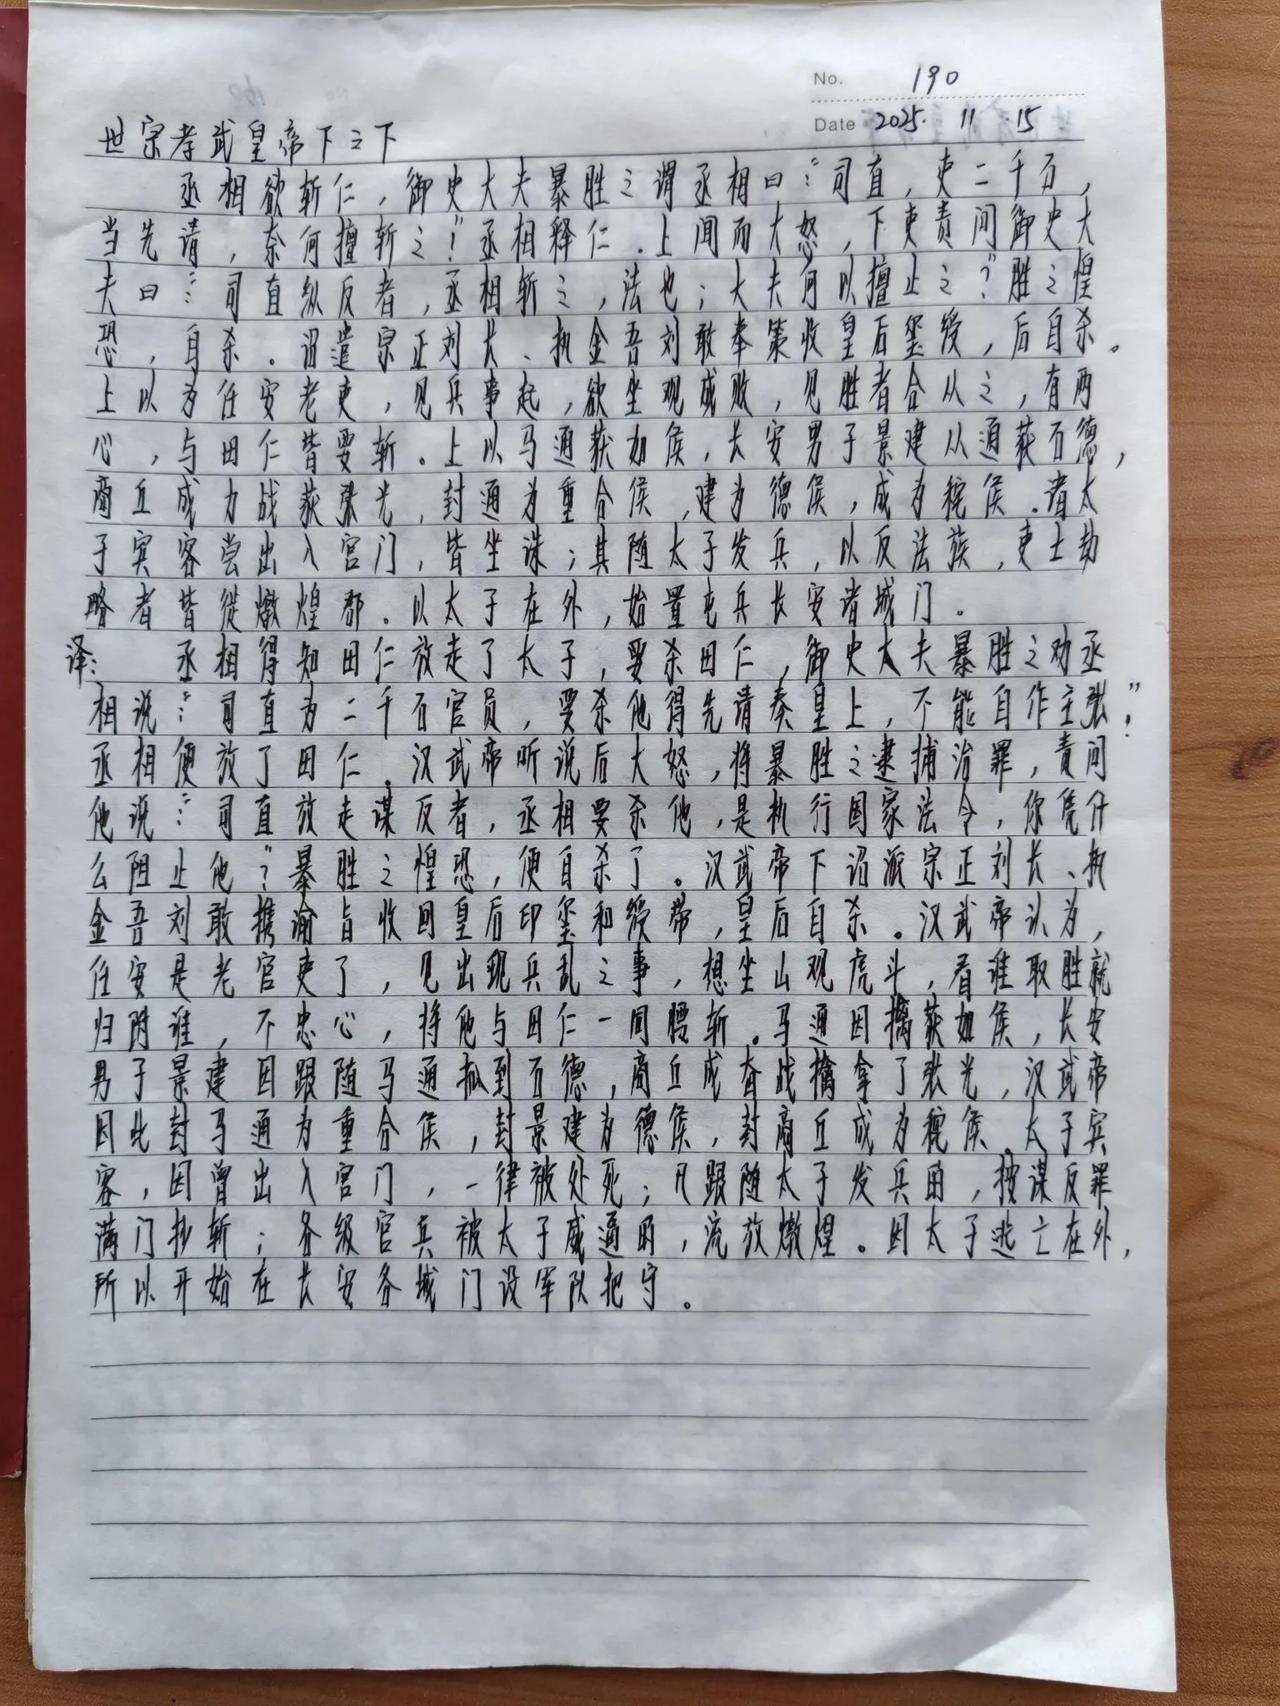 No. 190
Date 2025. 11. 15
世宗孝武皇帝下之下
丞相欲斩仁，御史大夫暴胜之谓丞相曰："司直，吏二千石，
当先请，奈何擅斩之！"丞相释仁.上闻而大怒，下吏责问御史大
夫曰："司直纵反者，丞相斩之，法也；大夫何以擅止之？"胜之惶
恐，自杀。诏遣宗正刘长、执金吾刘敢奉策收皇后玺绶，后自杀。
上以为任安老吏，见兵事起，欲坐观成败，见胜者合从之，有两
心，与田仁皆要斩。上以马通获如侯，长安男子景建从通获石德，
商丘成力战获张光，封通为重合侯，建为德侯，成为秺侯.诸太
子宾客尝出入宫门，皆坐诛；其随太子发兵，以反法族，吏士劫
略者皆徙燉煌郡。以太子在外，始置屯兵长安诸城门。
译： 丞相得知田仁放走了太子，要杀田仁，御史大夫暴胜之劝丞
相说："司直为二千石官员，要杀他得先请奏皇上，不能自作主张."
丞相便放了田仁.汉武帝听说后大怒，将暴胜之逮捕治罪，责问
他说："司直放走谋反者，丞相要杀他，是执行国家法令，你凭什
么阻止他？"暴胜之惶恐，便自杀了。汉武帝下诏派宗正刘长、执
金吾刘敢携谕旨收回皇后印玺和绶带，皇后自杀。汉武帝认为，
任安是老官吏了，见出现兵乱之事，想坐山观虎斗，看谁取胜就
归附谁，不忠心，将他与田仁一同腰斩.马通因擒获如侯，长安
男子景建因跟随马通抓到石德，商丘成奋战擒拿了张光，汉武帝
因此封马通为重合侯，封景建为德侯，封商丘成为秺侯.太子宾
客，因曾出入宫门，一律被处死；凡跟随太子发兵的，按谋反罪
满门抄斩；各级官兵被太子威逼的，流放燉煌。因太子逃亡在外，
所以开始在长安各城门设军队把守。